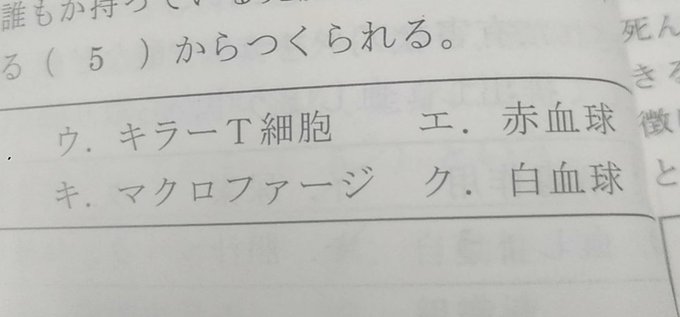 誰もが持っている
る( 5 )からつくられる。
ウ. キラーT細胞 エ. 赤血球
キ. マクロファージ ク. 白血球
死ん
きる
徴
と